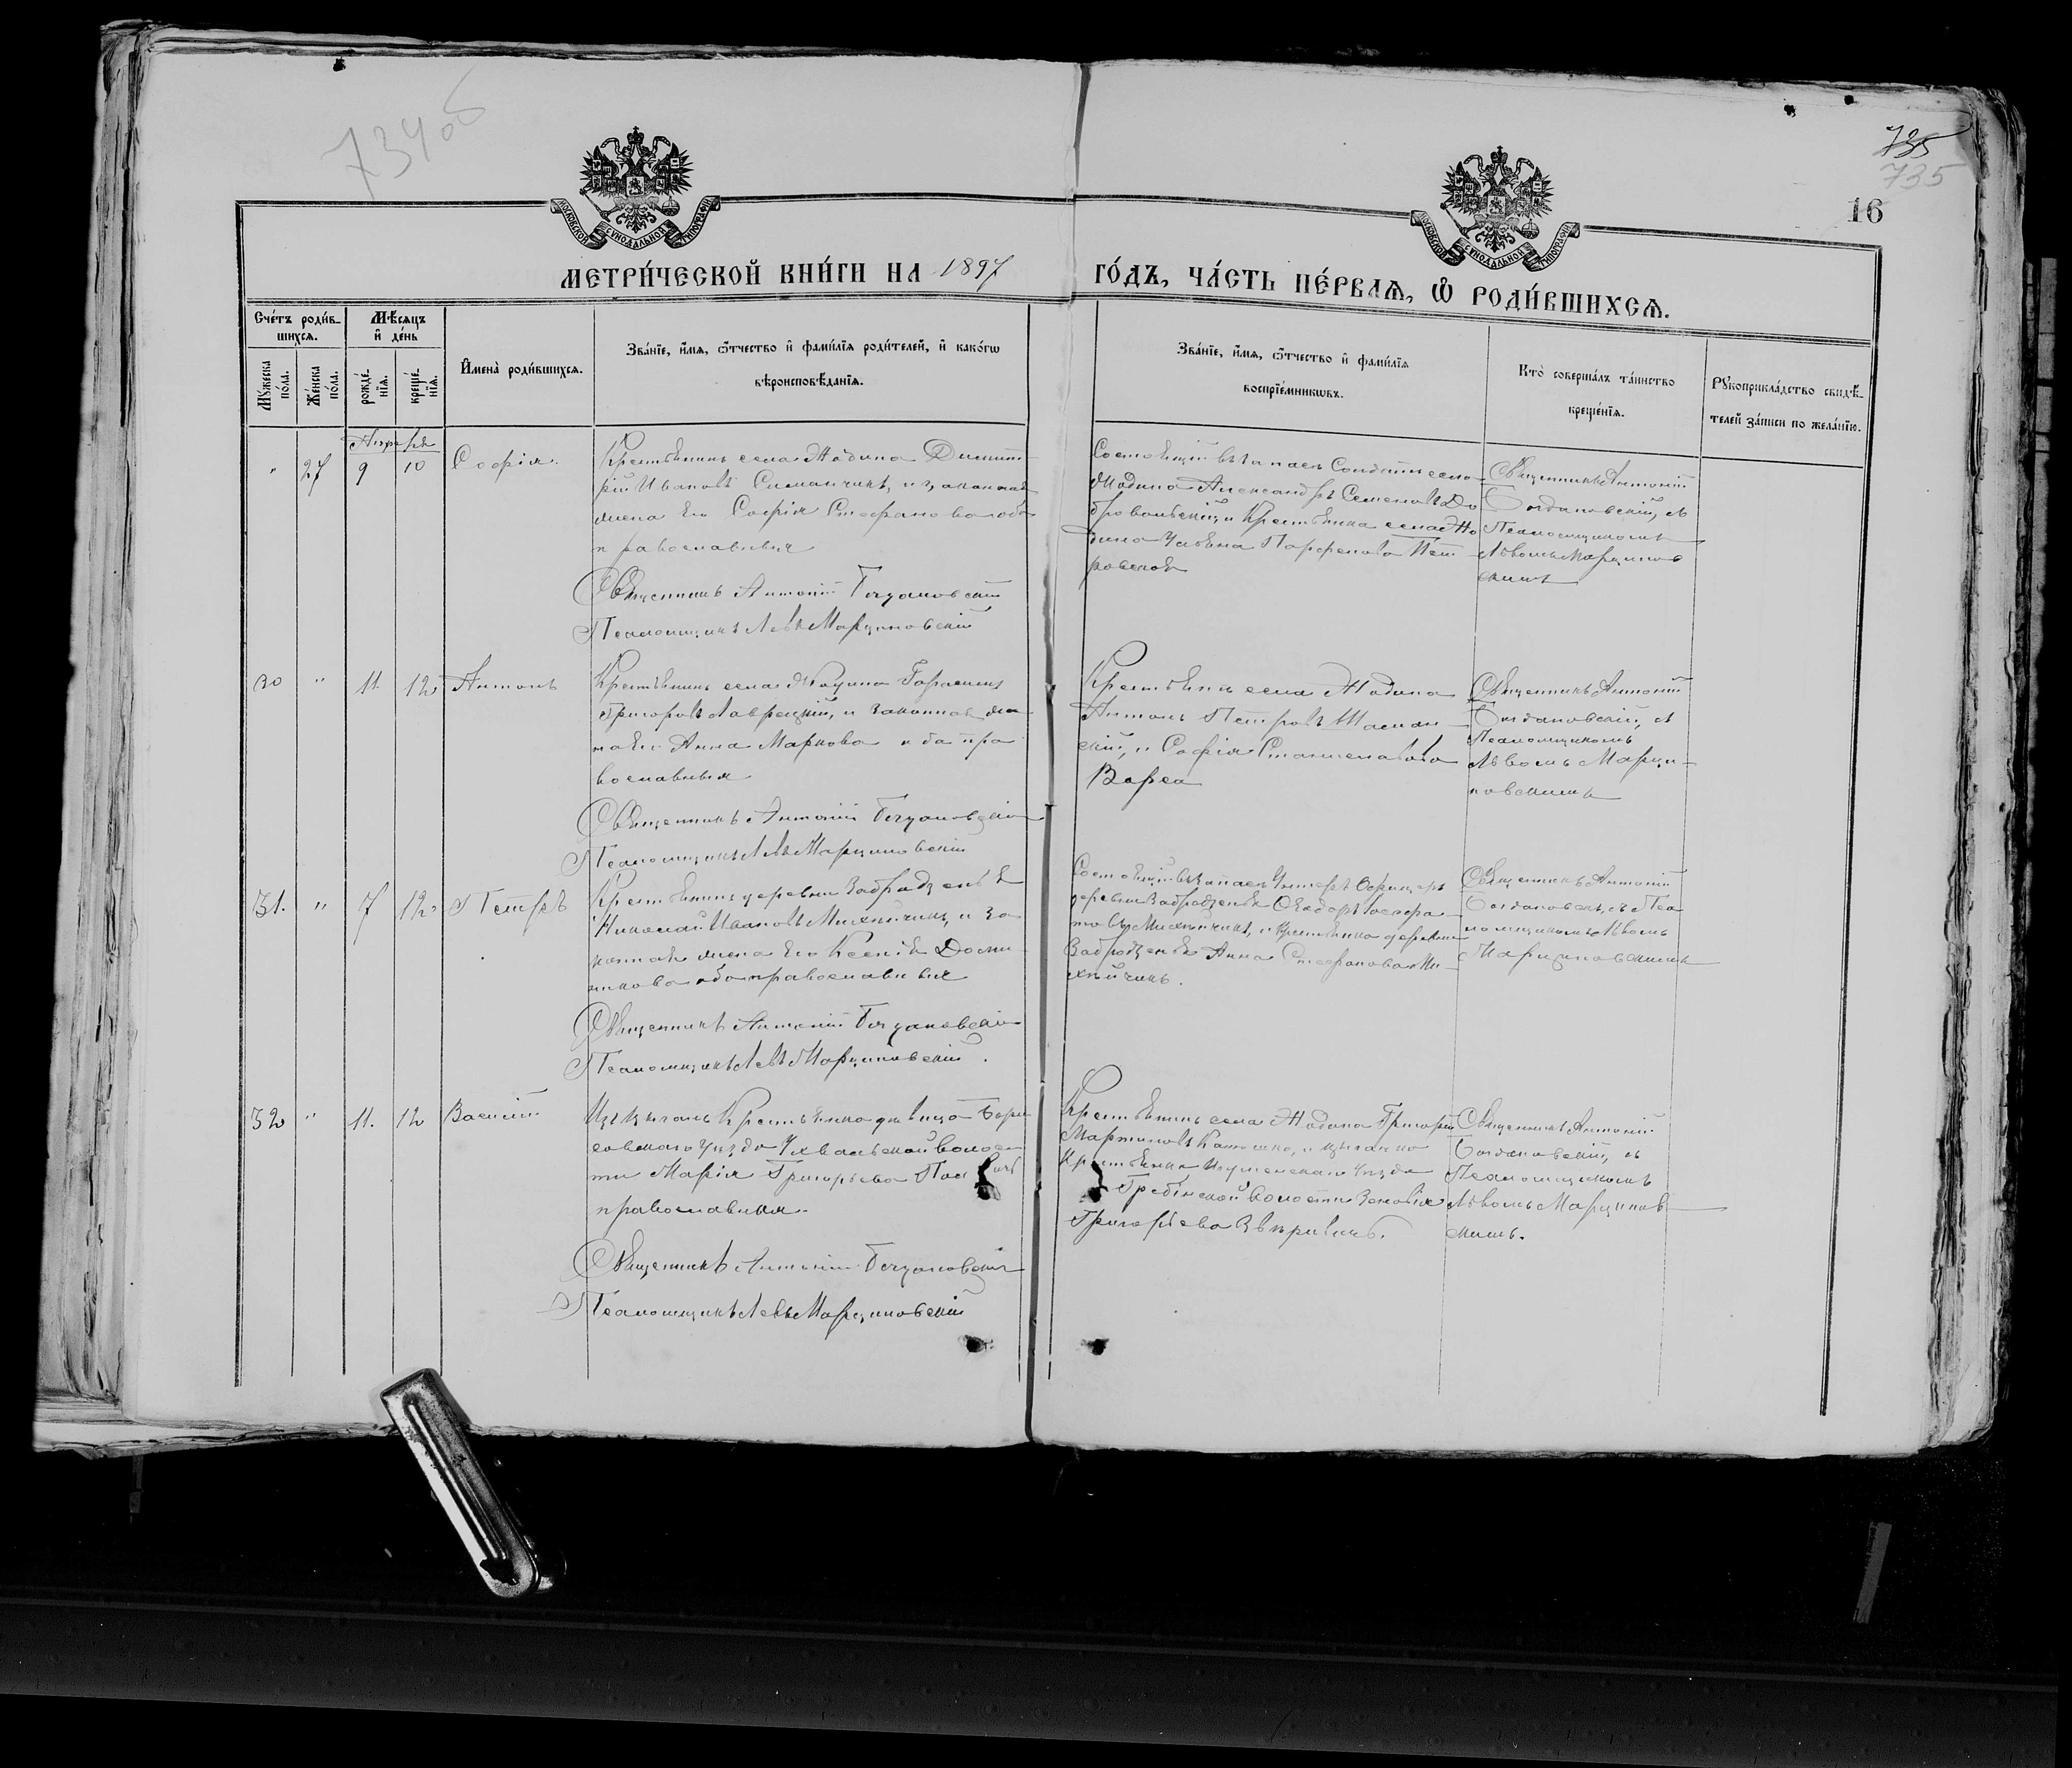 734 об
735
735
16
МОСКОВСКОЙ СѴНОДАЛЬНОЙ ТИПОГРАФІИ
МОСКОВСКОЙ СѴНОДАЛЬНОЙ ТИПОГРАФІИ
МЕТРИ́ЧЕСКОЙ КНИ́ГИ НА 1897
ГО́ДЪ, ЧА́СТЬ ПЕ́РВАѦ, Ѽ РОДИ́ВШИХСѦ.
Сче́тъ роди́в-
шихсѧ.
Мѣ́сѧцъ
и҆ де́нь
Мꙋ́жеска по́ла.
Же́нска по́ла.
рожде́-
нїѧ.
креще́-
нїѧ.
И҆мена̀ роди́вшихсѧ.
Зва́нїе, и҆́мѧ, ѻ҆́тчество и҆ фами́лїѧ роди́телей, и҆ како́гѡ
вѣроисповѣ́данїѧ.
Зва́нїе, и҆́мѧ, ѻ҆́тчество и҆ фами́лїѧ
воспрїе́мникѡвъ.
Кто̀ соверша́лъ та́инство
креще́нїѧ.
Рꙋкоприкла́дство свидѣ́-
телей за́писи по жела́нїю.
Апрѣля
" 27 9 10 Софія.
Крестьянинъ села Жодина Димит-
рій Ивановъ Симанчикъ, и законная
жена его Софія Стефанова оба
православныя
Священникъ Антоній Богдановскій
Псаломщикъ Левъ Марциновскій
Состоящій въ запасѣ Солдатъ села
Жодина Александръ Семеновъ До
бровольскій, и Крестьянка села Жо
дина Ульяна Парфенова Пет
ровская
Священникъ Антоній
Богдановскій, съ
Псаломщикомъ
Львомъ Марцинов
скимъ
30 " 11 12 Антонъ
Крестьянинъ села Жодина Герасимъ
Григоровъ Лаврецкій, и законная же
на его Анна Маркова оба пра
вославныя
Священникъ Антоній Богдановскій
Псаломщикъ Левъ Марциновскій
Крестьянинъ села Жодина
Антонъ Петровъ
и Софія
Священникъ Антоній
Богдановскій, съ
Псаломщикомъ
Львомъ Марци-
новскимъ
31. " 7 12 Петръ
Крестьянинъ деревни
Николай Ивановъ и за
конная жена его Ксенія
оба православныя
Священникъ Антоній Богдановскій
Псаломщикъ Левъ Марциновскій.
Состоящій въ запасѣ Унтеръ Офицеръ
деревни
и крестьянка деревни
Анна Стефанова Ми-
хнйчикъ.
Священникъ Антоній
Богдановскій, съ Пса
ломщикомъ Львомъ
Марциновскимъ
32 " 11. 12 Василій
Изъ цыганъ Крестьянка дѣвица Бори
совскаго Уѣзда Ухвальской волос
ти Марія Григорьева
православная.
Священникъ Антоній Богдановскій
Псаломщикъ Левъ Марциновскій
Крестьянинъ села Жодина Григорій
Мартиновъ и цыганка
Крестьянка Игуменскаго Уѣзда
Гребёнской волости Зеновія
Григорьева
Священникъ Антоній
Богдановскій, съ
Псаломщикомъ
Львомъ Марцинов
скимъ.